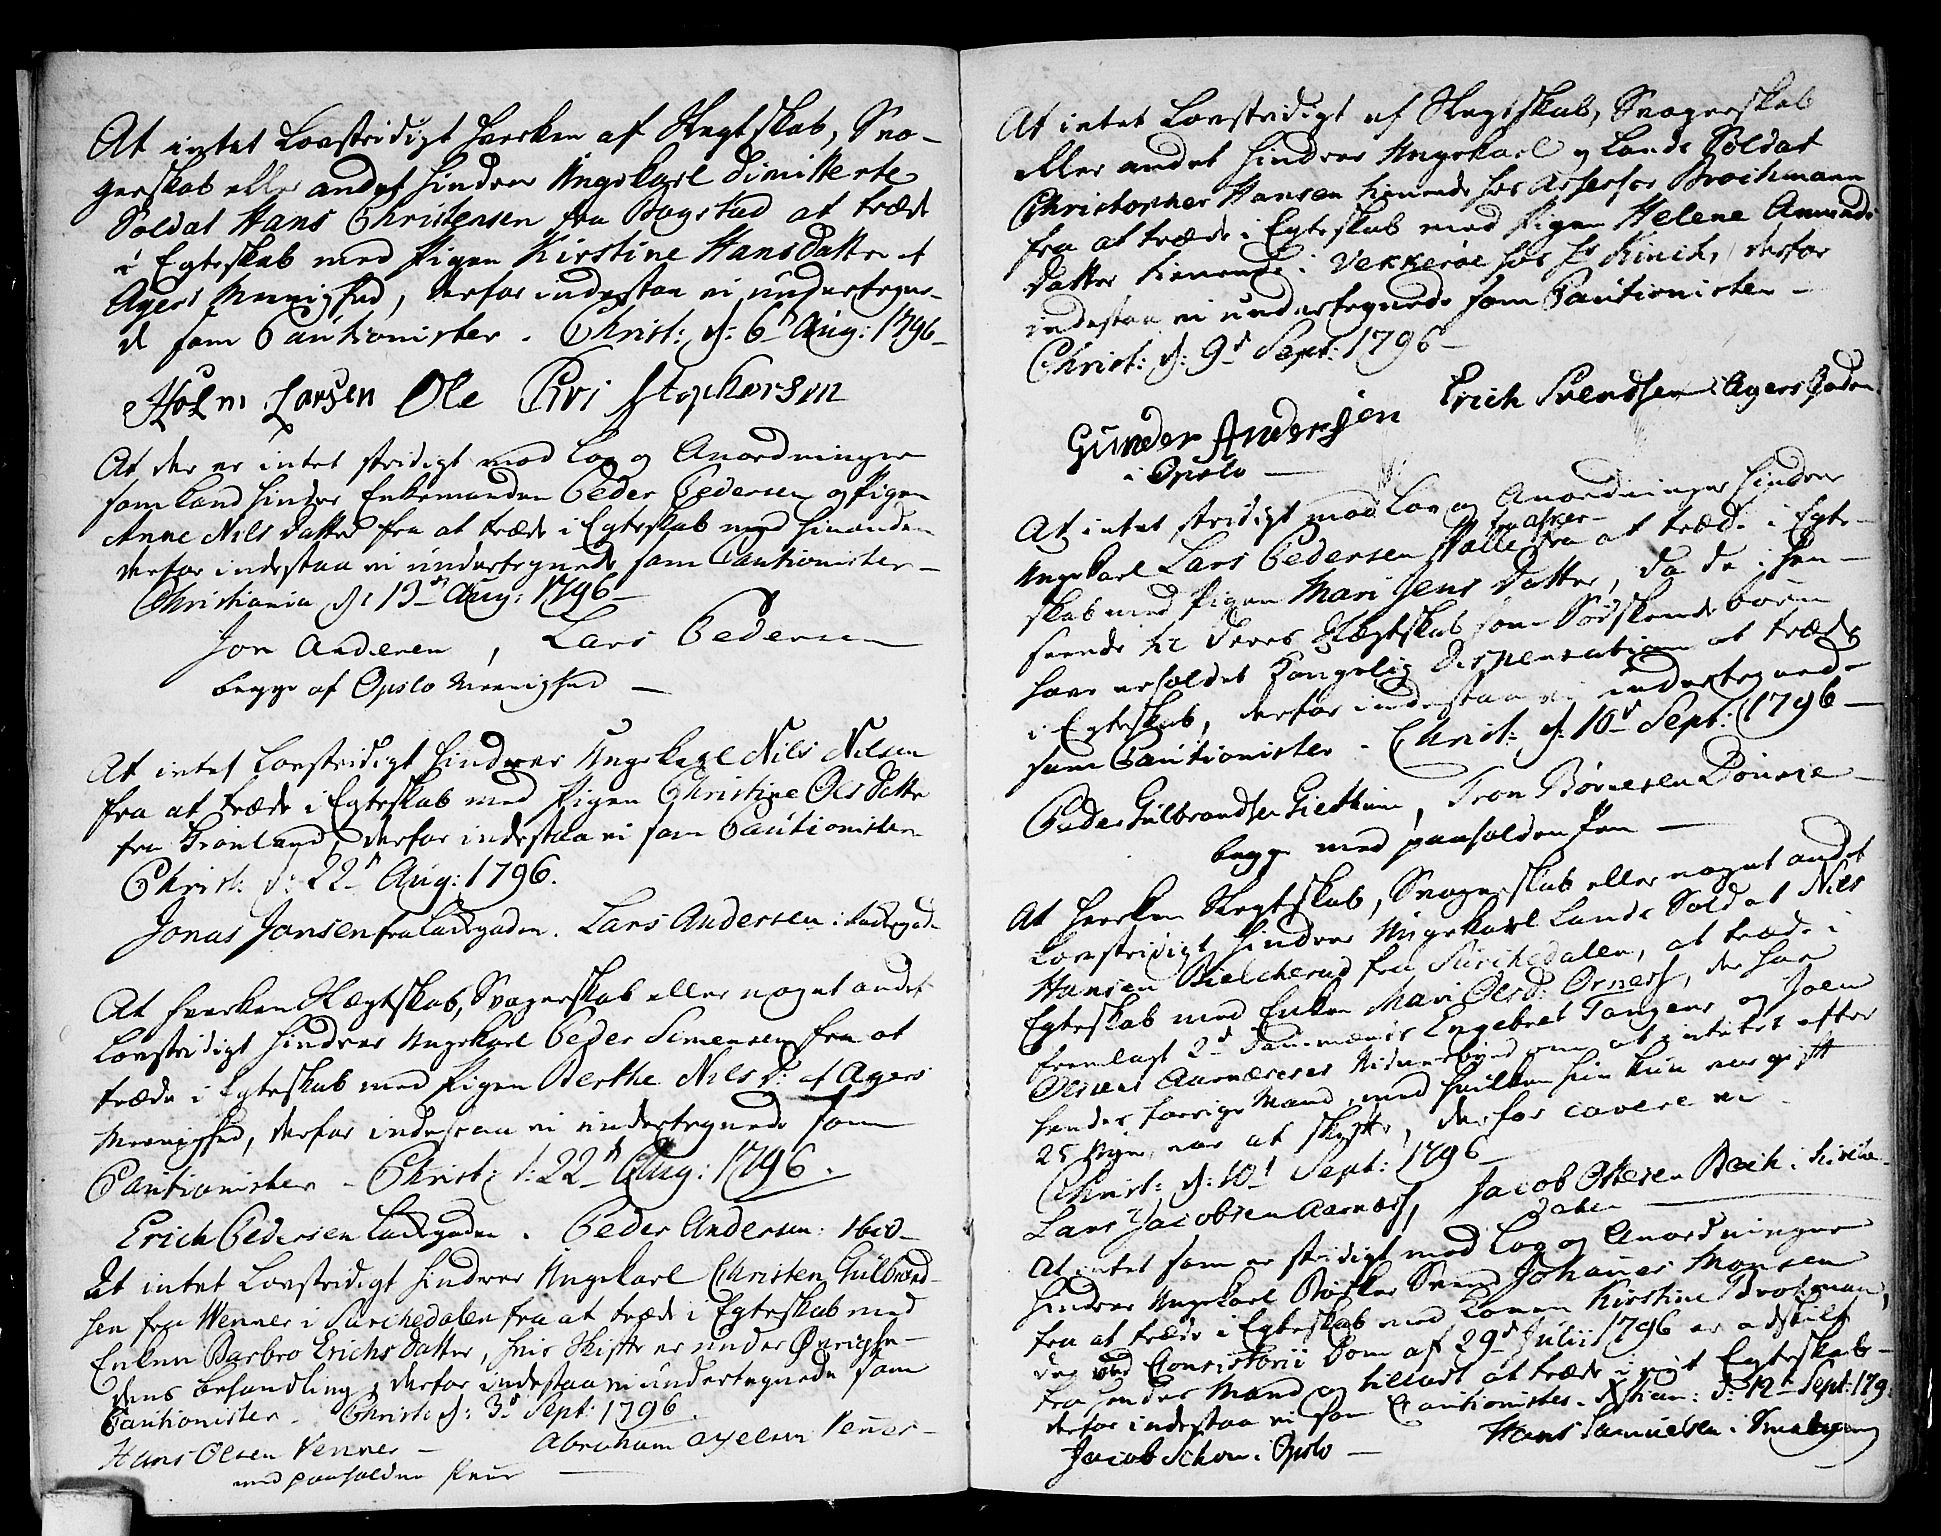 At intet Lovstridigt hverken af Slegtskab, Svo-
gerskab eller andet hindrer Ungekarl dimitterte
Soldat Hans Christensen fra Bogstad at træde
i Egteskab med Pigen Kirstine Hansdatter af
Agers Meenighed, derfor indestaa vi undertegne-
de som Cautionister. Christ: d: 6t Aug: 1796
Holm Larsen Ole Christophersen
At der er intet stridigt mod Lov og Anordninger
som kand hindre Enkemanden Peder Pedersen og Pigen
Anne Nils datter fra at træde i Egteskab med hinanden
derfor indestaa vi undertegnede som Cautionister
Christiania d: 13de Aug: 1796
Jon Andersen, Lars Pedersen
begge af Opslo Meenighed
At intet Lovstridigt hindrer Ungekarl Nils Nilsen
fra at træde i Egteskab med Pigen Christine Olsdatter
fra Grønland, derfor indestaa vi som Cautionister
Christ: d: 22d Aug: 1796.
Jonas Jonsen fra Lakkegaden. Lars Andersen i Lakkegad
At hverken Slægtskab, Svogerskab eller noget andet
Lovstridigt hindrer Ungekarl Peder Simensen fra at
træde i Egteskab med Pigen Berthe Nilsd: af Agers
Meenighed, derfor indestaa vi undertegnede som
Cautionister. Christ: d: 22d Aug: 1796.
Erich Pedersen Lakkegaden. Peder Andersen: ibid
At intet Lovstridigt hindrer Ungekarl Christen Gulbrand-
sen fra Wenner i Sørchedalen fra at træde i Egteskab med
Enken Barbro Erichsdatter, hvis Skifte er under Øvrighe-
dens behandling, derfor indestaa vi undertegnede som
Cautionister. Christ: d: 3d Sept: 1796.
Hans Olsen Venner Abraham Venner
med paaholden Pen
At intet Lovstridigt af Slegtskab, Svogerskab
eller andet hindrer Ungekarl og Lands Soldat
Christopher Hansen tienende hos Assessor Brochmann
fra at træde i Egteskab med Pigen Helene Amunds
datter tienende i Vekkerøe hos hr Kinch, derfor
indestaa vi undertegnede som Cautionister
Christ: d: 9d Sept: 1796
Gunder Andersen Erich Svendsen i Agers Gaden
i Opslo
At intet stridigt mod Lov og Anordninger hindrer
fra Asker
Ungekarl Lars Pedersen Halle fra at træde i Egte-
skab med Pigen Mari Jens datter, da de i hen-
seende til deres Slægtskab som Sødskende børn
have erholdet Kongelig Dispensation at træde
i Egteskab, derfor indestaa vi undertegnede
som Cautionister. Christ: d: 10d Sept: 1796
Peder Gulbrandsen Giethuus, Tron
begge med paaholden Pen
At hverken Slegtskab, Svogerskab eller noget andet
Lovstridigt hindrer Ungekarl Lands Soldat Nils
Hansen Bielcherud fra Sørchedalen, at træde i
Egteskab med Enken Mari Olsd: Orness, der har
fremlagt 2d Danmænds Engebret Tangens og Joen
Olsens Aarnæsses Vidnesbyrd om at intet efter
hendes forrige Mand, med hvilken hun kun var gift
25 Uger, var at skifte, derfor cavere vi
Christ: d: 10d Sept: 1796
Lars Jacobsen Aarnæss, Jacob Ottesen Bach i Sørche
dalen
At intet som er stridigt mod Lov og Anordninger
hindrer Ungekarl Bødker Svend Johannes Monsen
fra at træde i Egteskab med Konen Kirstine Brotman,
der ved Consistorii Dom af 29d Julii 1796 er adskilt
fra hendes Mand og tilladt at træde i nyt Egteskab
derfor indestaa vi som Cautionister. Xstian: d: 12t Sept: 179
Jacob Schou i Opslo Hans Samuelsen i